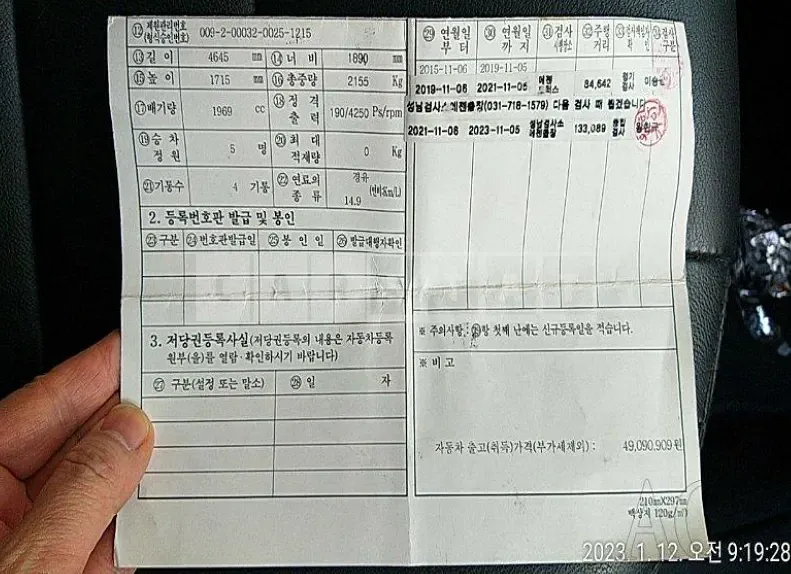 ⑫ 제원관리번호 (형식승인번호) 009-2-00032-0025-1215
⑬ 길이 4645 mm ⑭ 너비 1890 mm
⑮ 높이 1715 mm ⑯ 총중량 2155 Kg
⑰ 배기량 1969 cc ⑱ 정격출력 190/4250 Ps/rpm
⑲ 승차정원 5 명 ⑳ 최대적재량 0 Kg
㉑ 기통수 4 기통 ㉒ 연료의 종류 경유 (연비Km/L) 14.9
2. 등록번호판 발급 및 봉인
㉓ 구분 ㉔ 번호판발급일 ㉕ 봉인일 ㉖ 발급대행자확인
3. 저당권등록사실(저당권등록의 내용은 자동차등록
원부(을)를 열람·확인하시기 바랍니다)
㉗ 구분(설정 또는 말소) ㉘ 일자
㉙ 연월일부터 ㉚ 연월일까지 ㉛ 검사 ㉜ 주행거리 확인 검사구분
2015-11-06 2019-11-05
2019-11-06 2021-11-05 84,642 정기검사
성남검사소 출장(031-718-1579) 다음 검사 때 뵙겠습니다
2021-11-06 2023-11-05 성남검사소 133,089 종합검사
※ 주의사항: ㉙항 첫째 난에는 신규등록일을 적습니다.
※ 비고
자동차 출고(취득)가격(부가세제외) : 49,090,909원
210㎜X297㎜
백상지 120g/㎡
2023. 1. 12. 오전 9:19:28